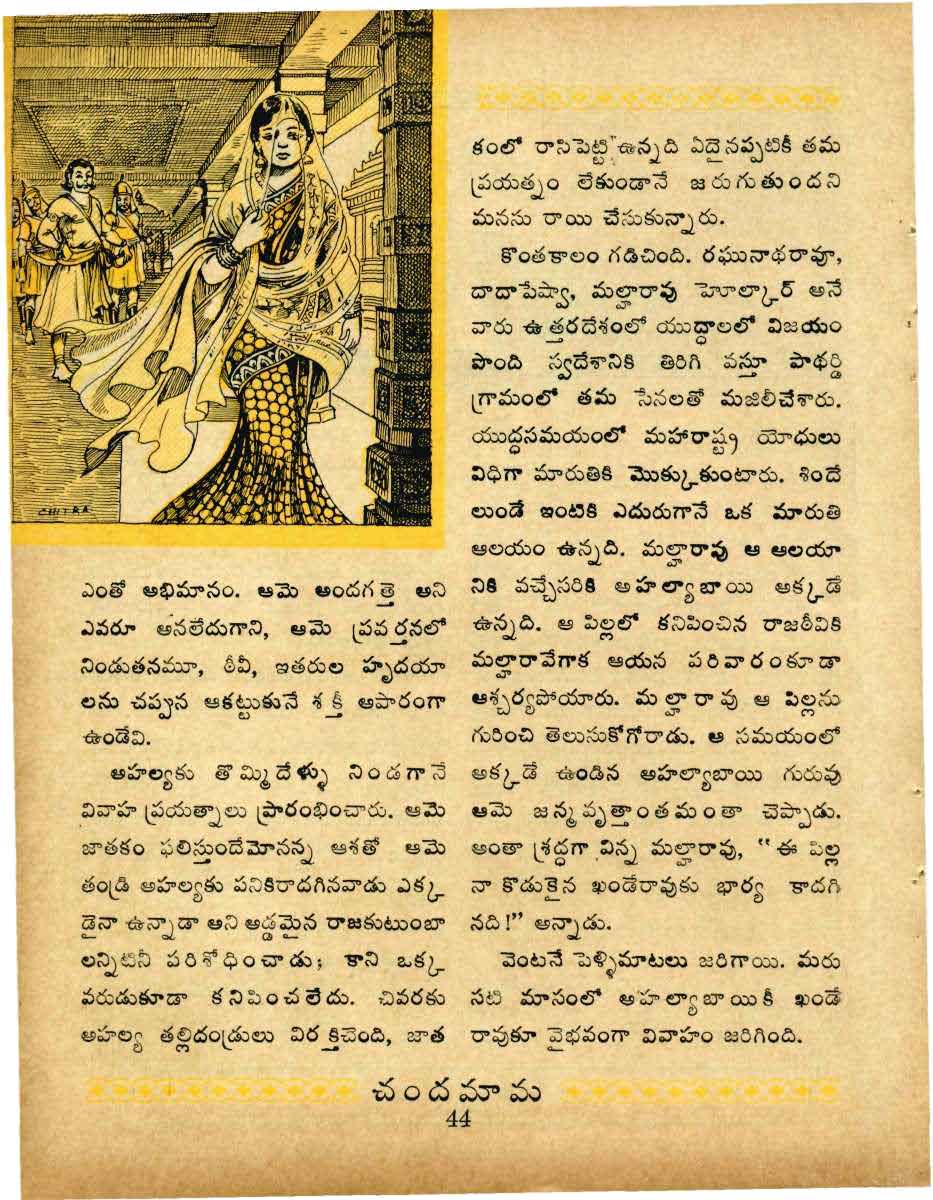 CHITRA
ఎంతో అభిమానం. ఆమె అందగత్తె అని
ఎవరూ అనలేదుగాని, ఆమె ప్రవర్తనలో
నిండుతనమూ, ఠీవీ, ఇతరుల హృదయా
లను చప్పున ఆకట్టుకునే శక్తీ అపారంగా
ఉండేవి.
అహల్యకు తొమ్మిదేళ్ళు నిండగానే
వివాహ ప్రయత్నాలు ప్రారంభించారు. ఆమె
జాతకం ఫలిస్తుందేమోనన్న ఆశతో ఆమె
తండ్రి అహల్యకు పనికిరాదగినవాడు ఎక్క
డైనా ఉన్నాడా అని అడ్డమైన రాజకుటుంబా
లన్నిటినీ పరిశోధించాడు; కాని ఒక్క
వరుడుకూడా కనిపించలేదు. చివరకు
అహల్య తల్లిదండ్రులు విరక్తిచెంది, జాత
కంలో రాసిపెట్టి ఉన్నది ఏదైనప్పటికీ తమ
ప్రయత్నం లేకుండానే జరుగుతుందని
మనసు రాయి చేసుకున్నారు.
కొంతకాలం గడిచింది. రఘునాథరావూ,
దాదాపేష్వా, మల్హారావు హెూల్కార్ అనే
వారు ఉత్తరదేశంలో యుద్ధాలలో విజయం
పొంది స్వదేశానికి తిరిగి వస్తూ పాథర్డి
గ్రామంలో తమ సేనలతో మజిలీచేశారు.
యుద్ధసమయంలో మహారాష్ట్ర యోధులు
విధిగా మారుతికి మొక్కుకుంటారు. శిందే
లుండే ఇంటికి ఎదురుగానే ఒక మారుతి
ఆలయం ఉన్నది. మల్హారావు ఆ ఆలయా
నికి వచ్చేసరికి అహల్యాబాయి అక్కడే
ఉన్నది. ఆ పిల్లలో కనిపించిన రాజఠీవికి
మల్హారావేగాక ఆయన పరివారంకూడా
ఆశ్చర్యపోయారు. మల్హారావు ఆ పిల్లను
గురించి తెలుసుకోగోరాడు. ఆ సమయంలో
అక్కడే ఉండిన అహల్యాబాయి గురువు
ఆమె జన్మవృత్తాంతమంతా చెప్పాడు.
అంతా శ్రద్ధగా విన్న మల్హారావు, "ఈ పిల్ల
నా కొడుకైన ఖండేరావుకు భార్య కాదగి
నది!" అన్నాడు.
వెంటనే పెళ్ళిమాటలు జరిగాయి. మరు
సటి మాసంలో అహల్యాబాయికీ ఖండే
రావుకూ వైభవంగా వివాహం జరిగింది.
చందమామ
44